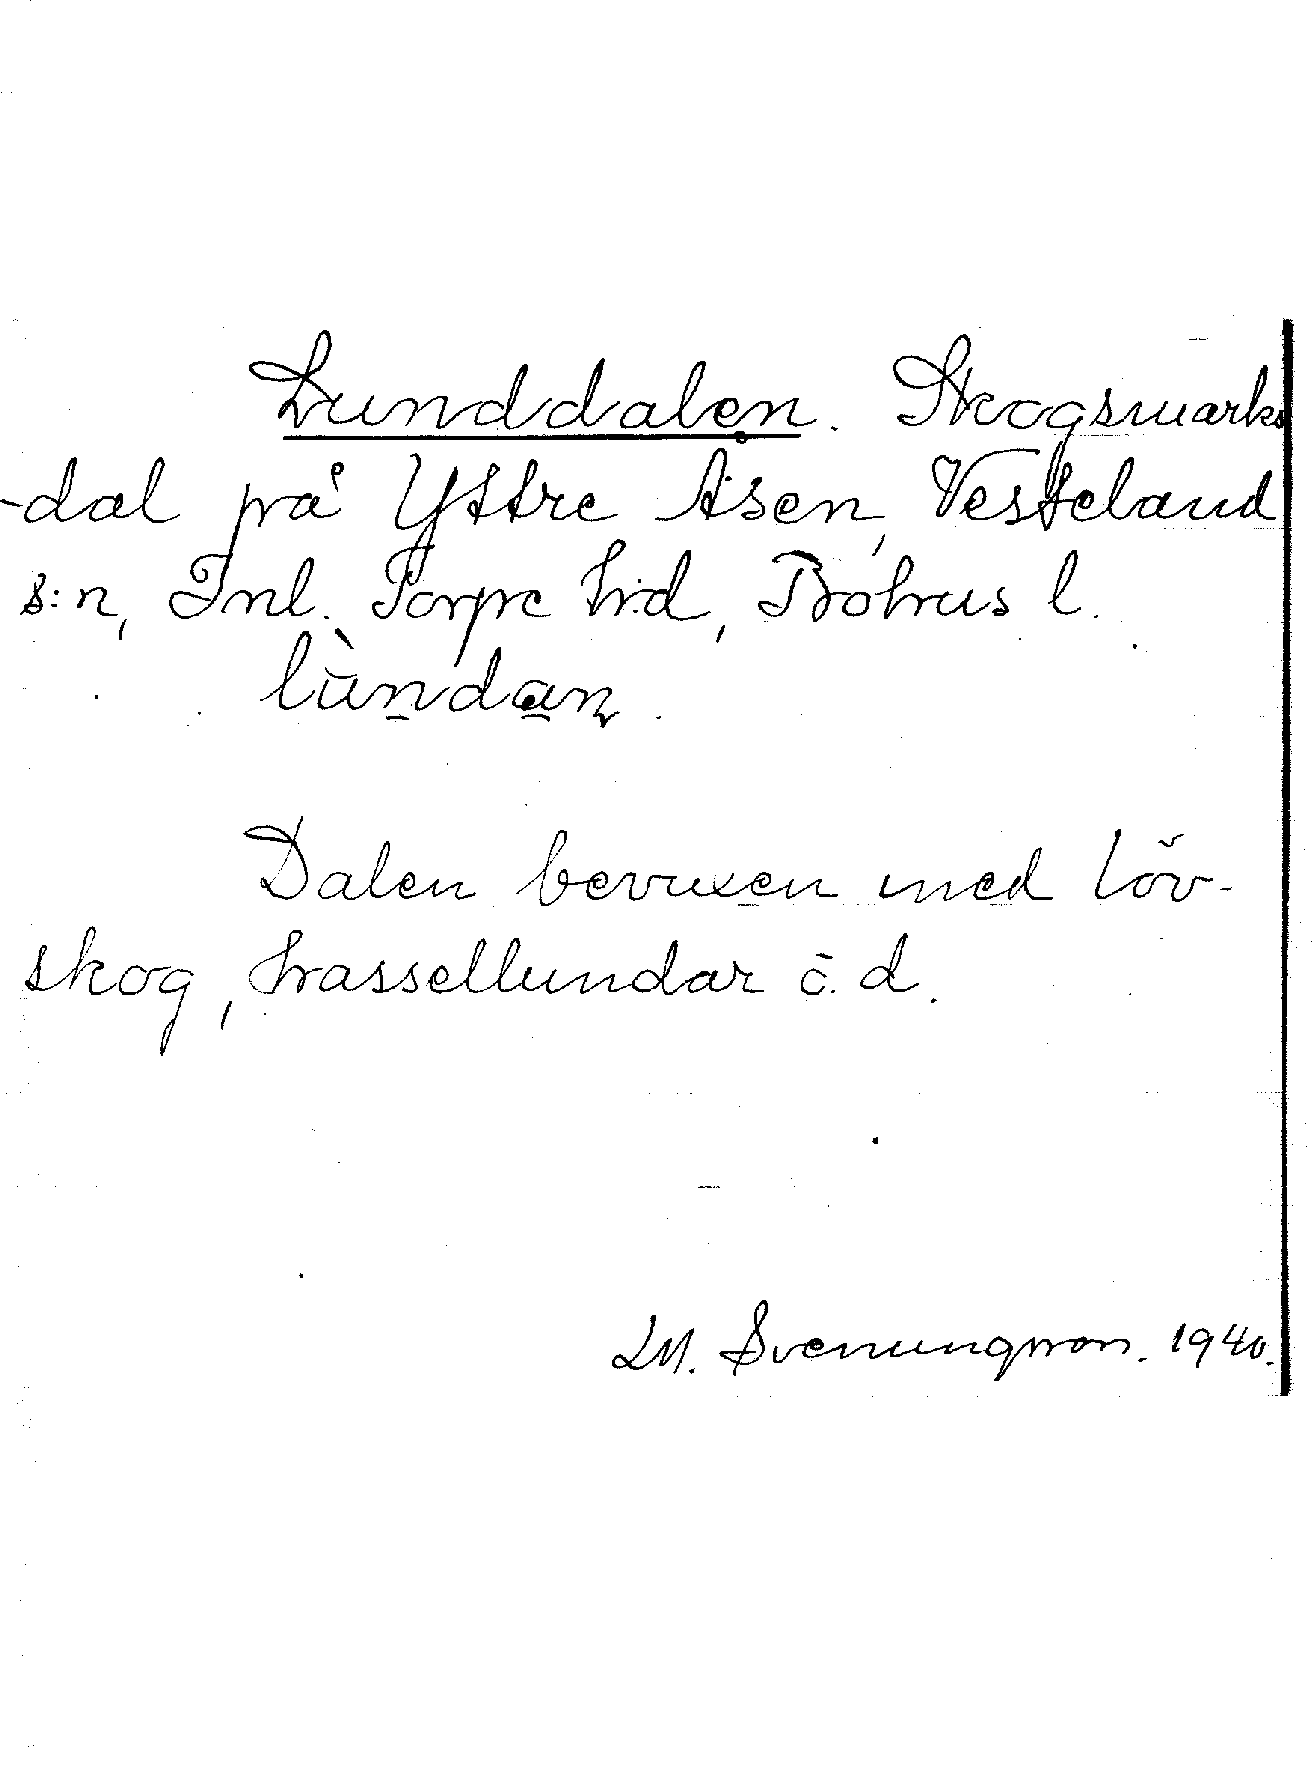 Lunddalen. Skogsmarks
-dal på Yttre Åsen, Vesteland
s:n, Inl. Torpe h:d, Bohus l.
lùndan.
Dalen bevuxen med löv-
skog, hassellundar o. d.
LM. Svenungsson. 1940.